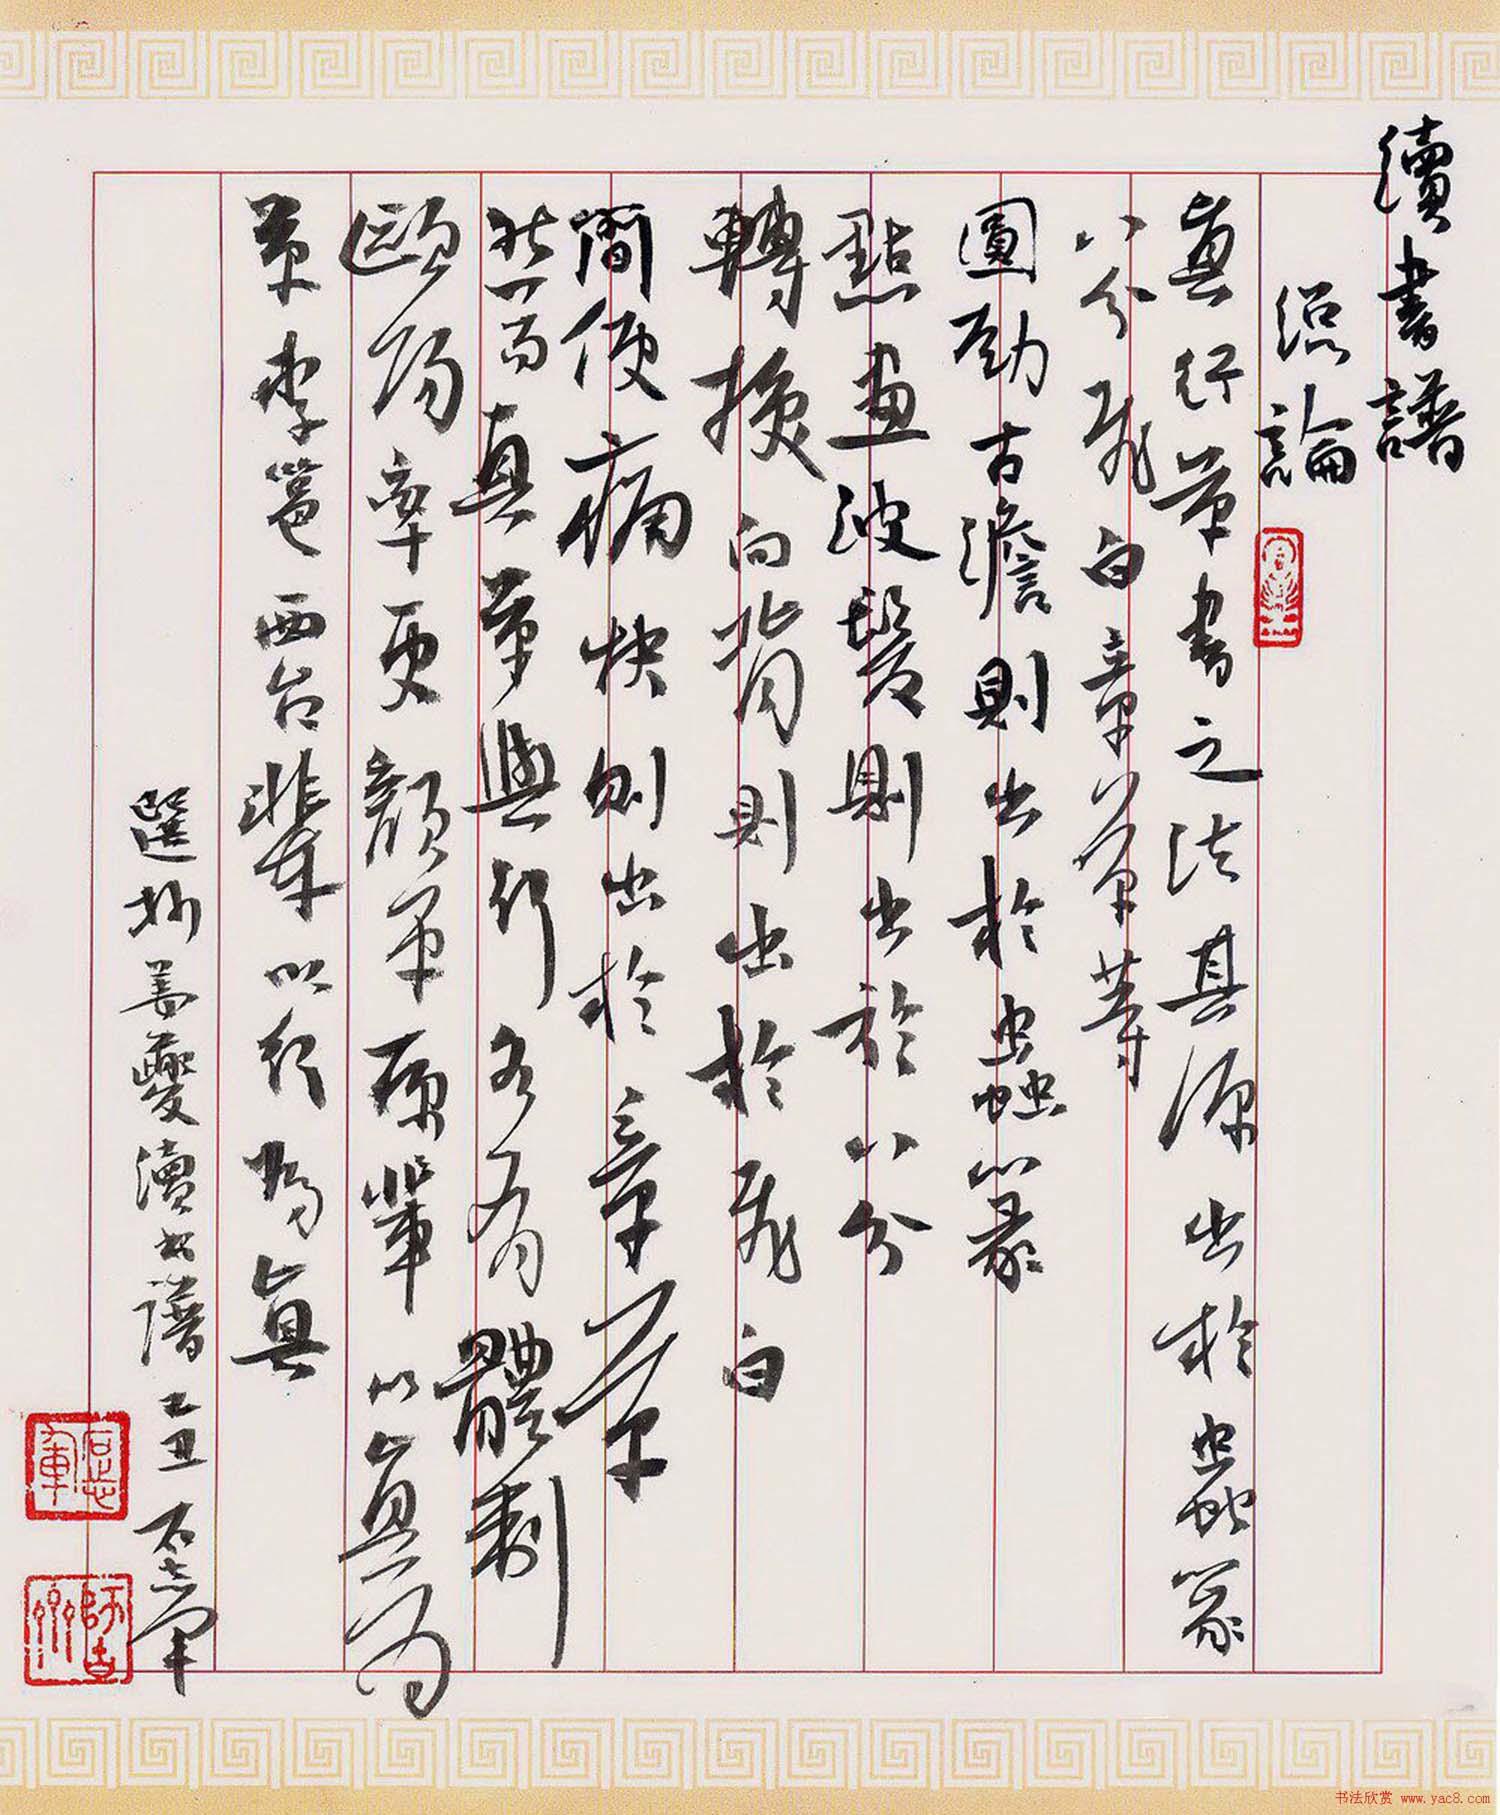 續書譜
總論
真行草書之法其源出於蟲篆
八分飛白章草等
圓勁古澹則出於蟲篆
點畫波髮則出於八分
轉換向背則出於飛白
簡便痛快則出於章草
然而真草與行各有體制
歐陽率更顏平原輩以真為
草李邕西台輩以行為真
選抄姜夔續書譜己丑石志軍
石志軍
師古
书法欣赏 www.yac8.com